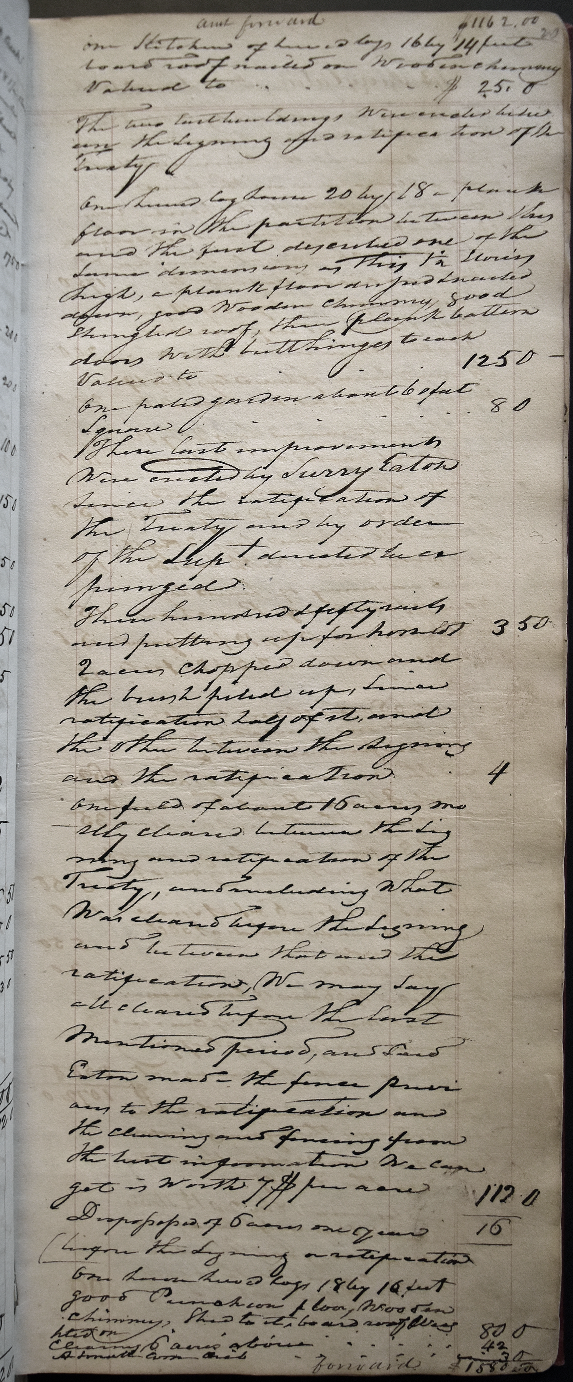 amt forward $1162.00
one Kitchen of hewed logs 16 by 14 feet
board roof nailed on Wooden chimney
Valued to $ 25.0
The two last buildings Were under
the signing and ratification of the
Treaty
One hewed log house 20 by 18 - plank
floor in the partition between this
and the first described one of the
same dimensions as this 1½ Stories
high, a plank floor nailed
down, good Wooden chimney, good
Shingled roof, three plank batten
doors With butt hinges to each
Valued to 1250
One paled garden about 60 feet
Square 80
These last improvements
Were erected by Surry Eaton
since the ratification of
the Treaty and by order
of the Supt. directed to be ex
punged
Three hundred & fifty rails
and putting up for horse lot 350
2 acres chopped down and
the brush piled up, Since
ratification half of it, and
the other between the signing
and the ratification 4
One field of about 16 acres mo
stly cleared between the sig
ning and ratification of the
Treaty, and including What
Was cleared before the signing
and between that and the
ratification, We may say
all cleared before the last
Mentioned period, and Said
Eaton made the fence previ
ous to the ratification and
the clearing and fencing from
the best information We can
get is Worth 7$ per acre 112.0
Dispossessed of 6 acres one year 16
before the signing or ratification
One house hewed logs 18 by 16 feet
good Puncheon floor, Wooden
chimney, Shed to it, board roof
80 0
Clearing 6 acres above 42
A small corn crib
forward